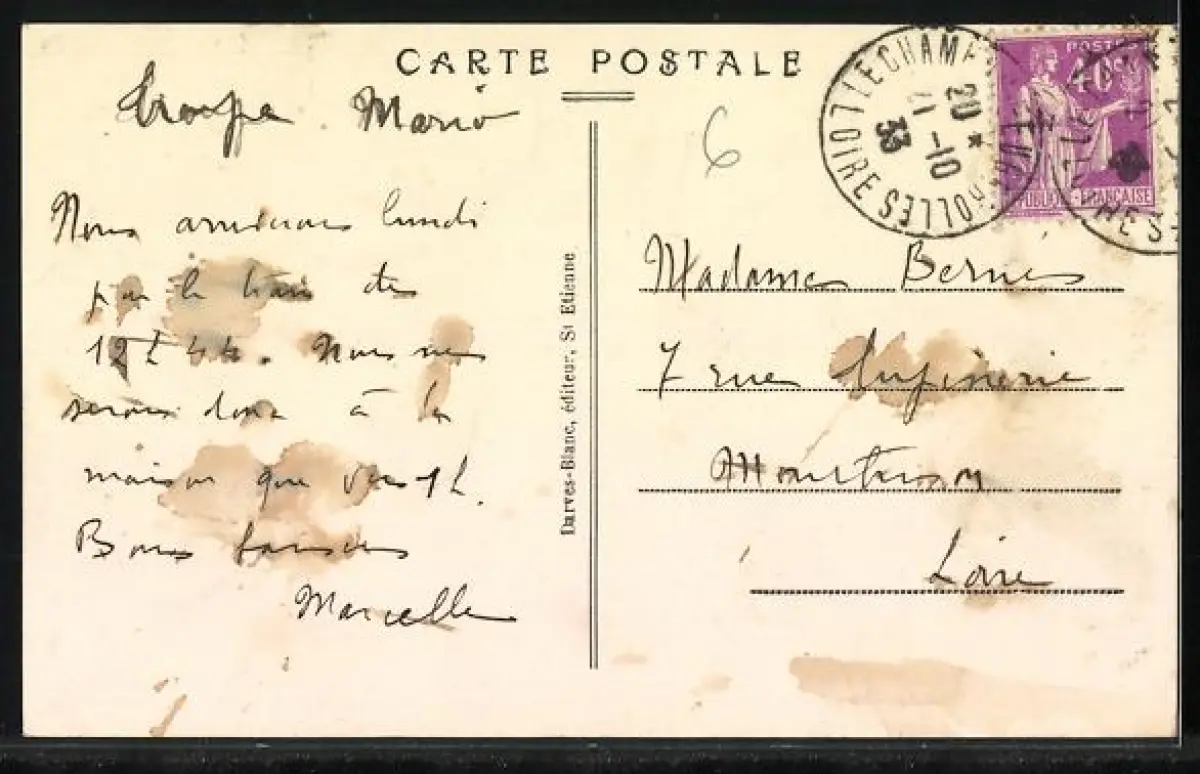 CARTE POSTALE
6
Mario
Nous arriverons lundi
par le train de
12h 44. Nous ne
serons donc à la
maison que vers 1h.
Bons baisers
Marcelle
Darves-Blanc, éditeur, St Etienne
LE CHAM
LOIRE
20 *
11-10
33
POSTES
40c
REPUBLIQUE FRANÇAISE
Madame Bernes
7 rue
Montbrison
Loire